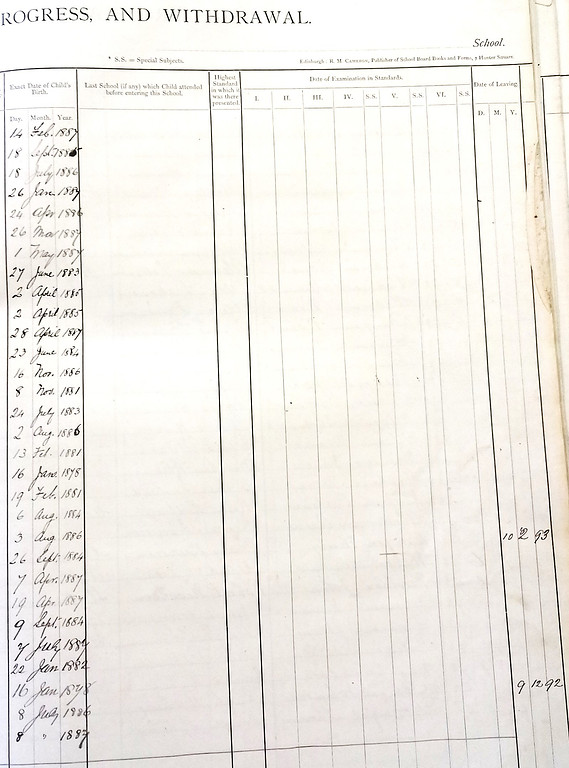 ROGRESS, AND WITHDRAWAL.
School.
* S.S. = Special Subjects.
Edinburgh: R. M. Cameron, Publisher of School Board Books and Forms, Hunter Square
Exact Date of Child's Birth. Last School (if any) which Child attended before entering this School. Highest Standard in which it was there presented. Date of Examination in Standards. Date of Leaving
I. II. III. IV. S.S. V. S.S. VI. S.S.
Day. Month. Year. D. M. Y.
14 Feb. 1887
18 Sept. 1885
18 July 1886
26 Jan. 1887
24 Apr 1886
26 1887
1 May 1887
27 June 1883
2 April 1885
2 April 1885
28 April 1887
23 June 1884
16 Nov. 1886
8 Nov. 1881
24 July 1883
2 Aug. 1886
13 Feb. 1881
16 June 1878
19 Feb. 1881
6 Aug. 1884
3 Aug 1886 10 2 93
26 Sept. 1884
7 Apr. 1887
19 Apr 1887
9 Sept. 1884
7 July 1887
22 Jan 1882
16 Jan 1878 9 12 92
8 July 1886
8 " 1887